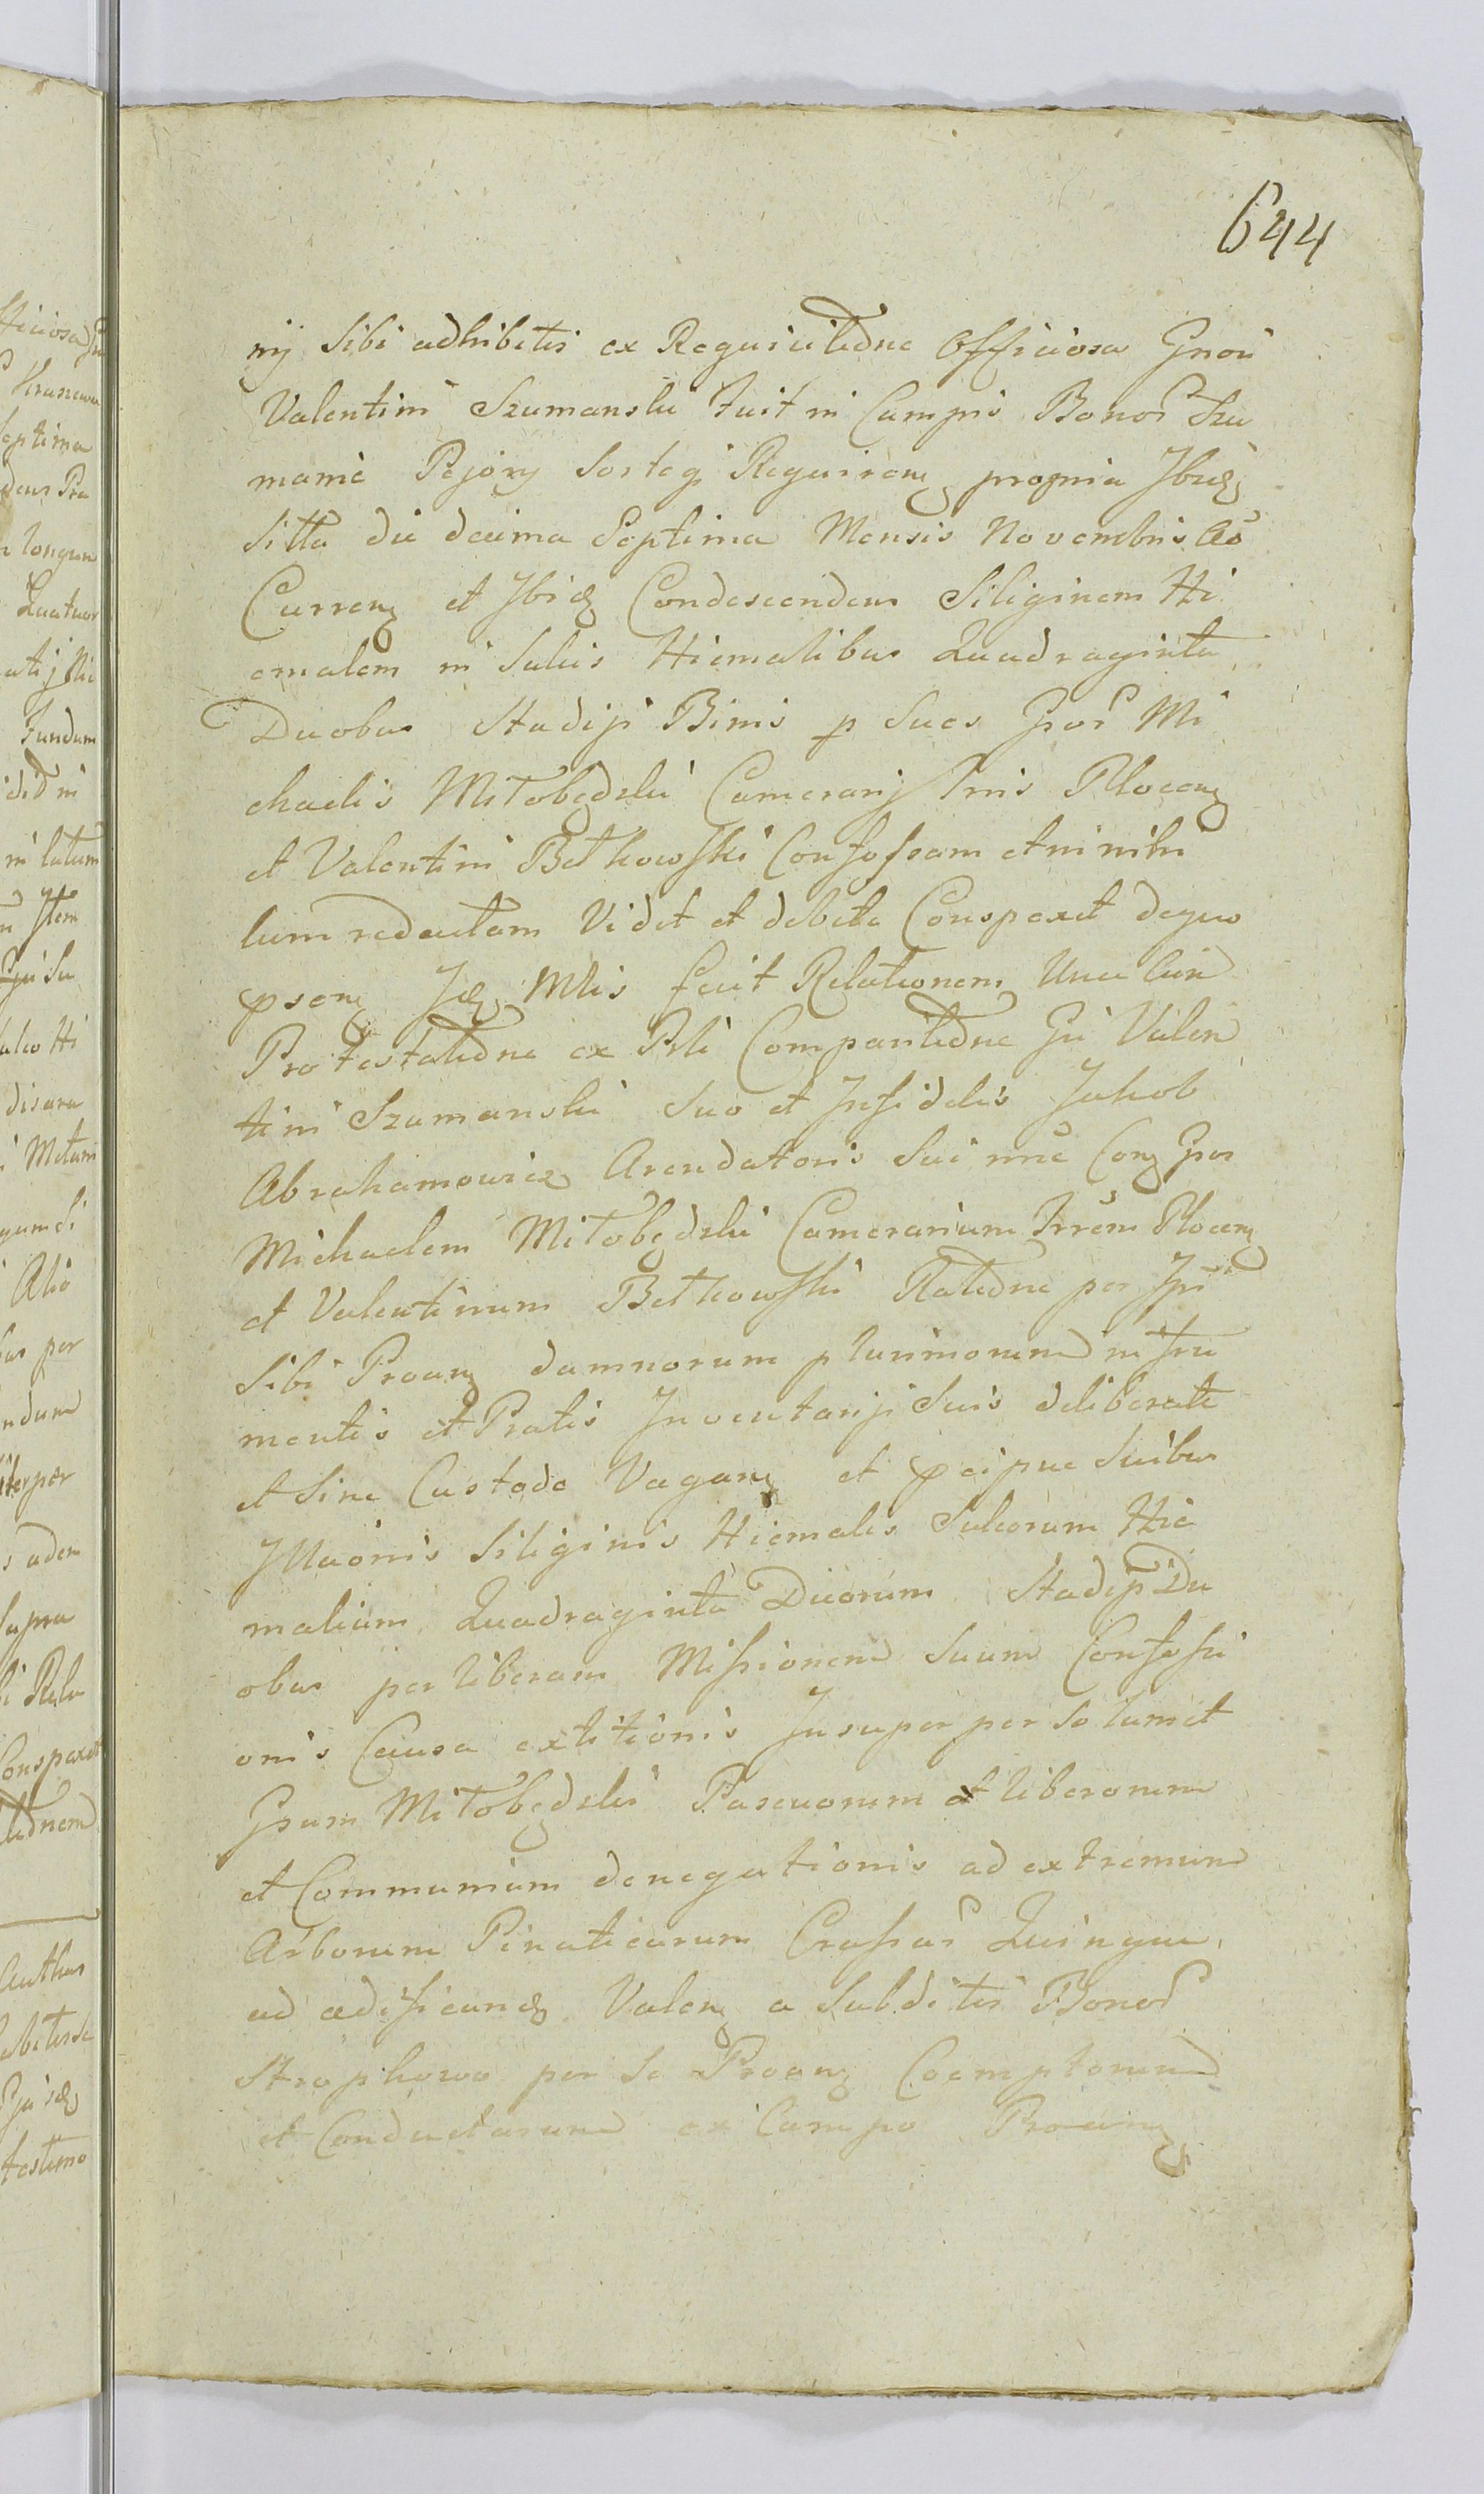 644
nij Sibi adhibitis ex Requisitione Officiosa Gnosi
Valentini Szumanski Fuit in Campis Bonor Szu
manie Pejory Sorteq Requiren propria Ibidę
Sitta die decima Septima Mensis Novembris Ao
Curren et Ibidę Condescendens Siliginem Hi
emalem in Sulcis Hiemalibus Quadraginta
Duobus Stadijs Binis p Sues Gnor Mi
chaelis Miłobędzki Camerarij Trris Plocen
et Valentini Betkowski Confossam et in nihi
lum redactam Vidit et debite Conspexit de quo
psens Idę Mlis fecit Relationem Una Cum
Protestatione ex Prli Comparitione Gsi Valen
tini Szumanski Suo et Infidelis Jakob
Abrahamowicz Arendatoris Sui nne Con Gsos
Michaelem Miłobędzki Camerarium Trrem Plocen
et Valentinum Betkowski Ratione per Ipsi
Sibi Proan damnorum plurimorum in Fru
mentis et Pratis Inventarijs Suis deliberate
et Sine Custode Vagan et pcipue Suibus
Illaonis Siliginis Hiemalis Sulcorum Hie
malium Quadraginta Duorum Stadijs Du
obus per liberam Missionem Suum Confossi
onis Causa extitionis Insuper per Solum et
Gsum Miłobędzki Pascuorum et liberorum
et Communium denegationis ad extremum
Arborum Pinaticarum Crassar Quinque
ad aedificandę Valen a Subditis Bonor
Strophowo per Se Proan Coemptorum
et Conductarum ex Campo Proan